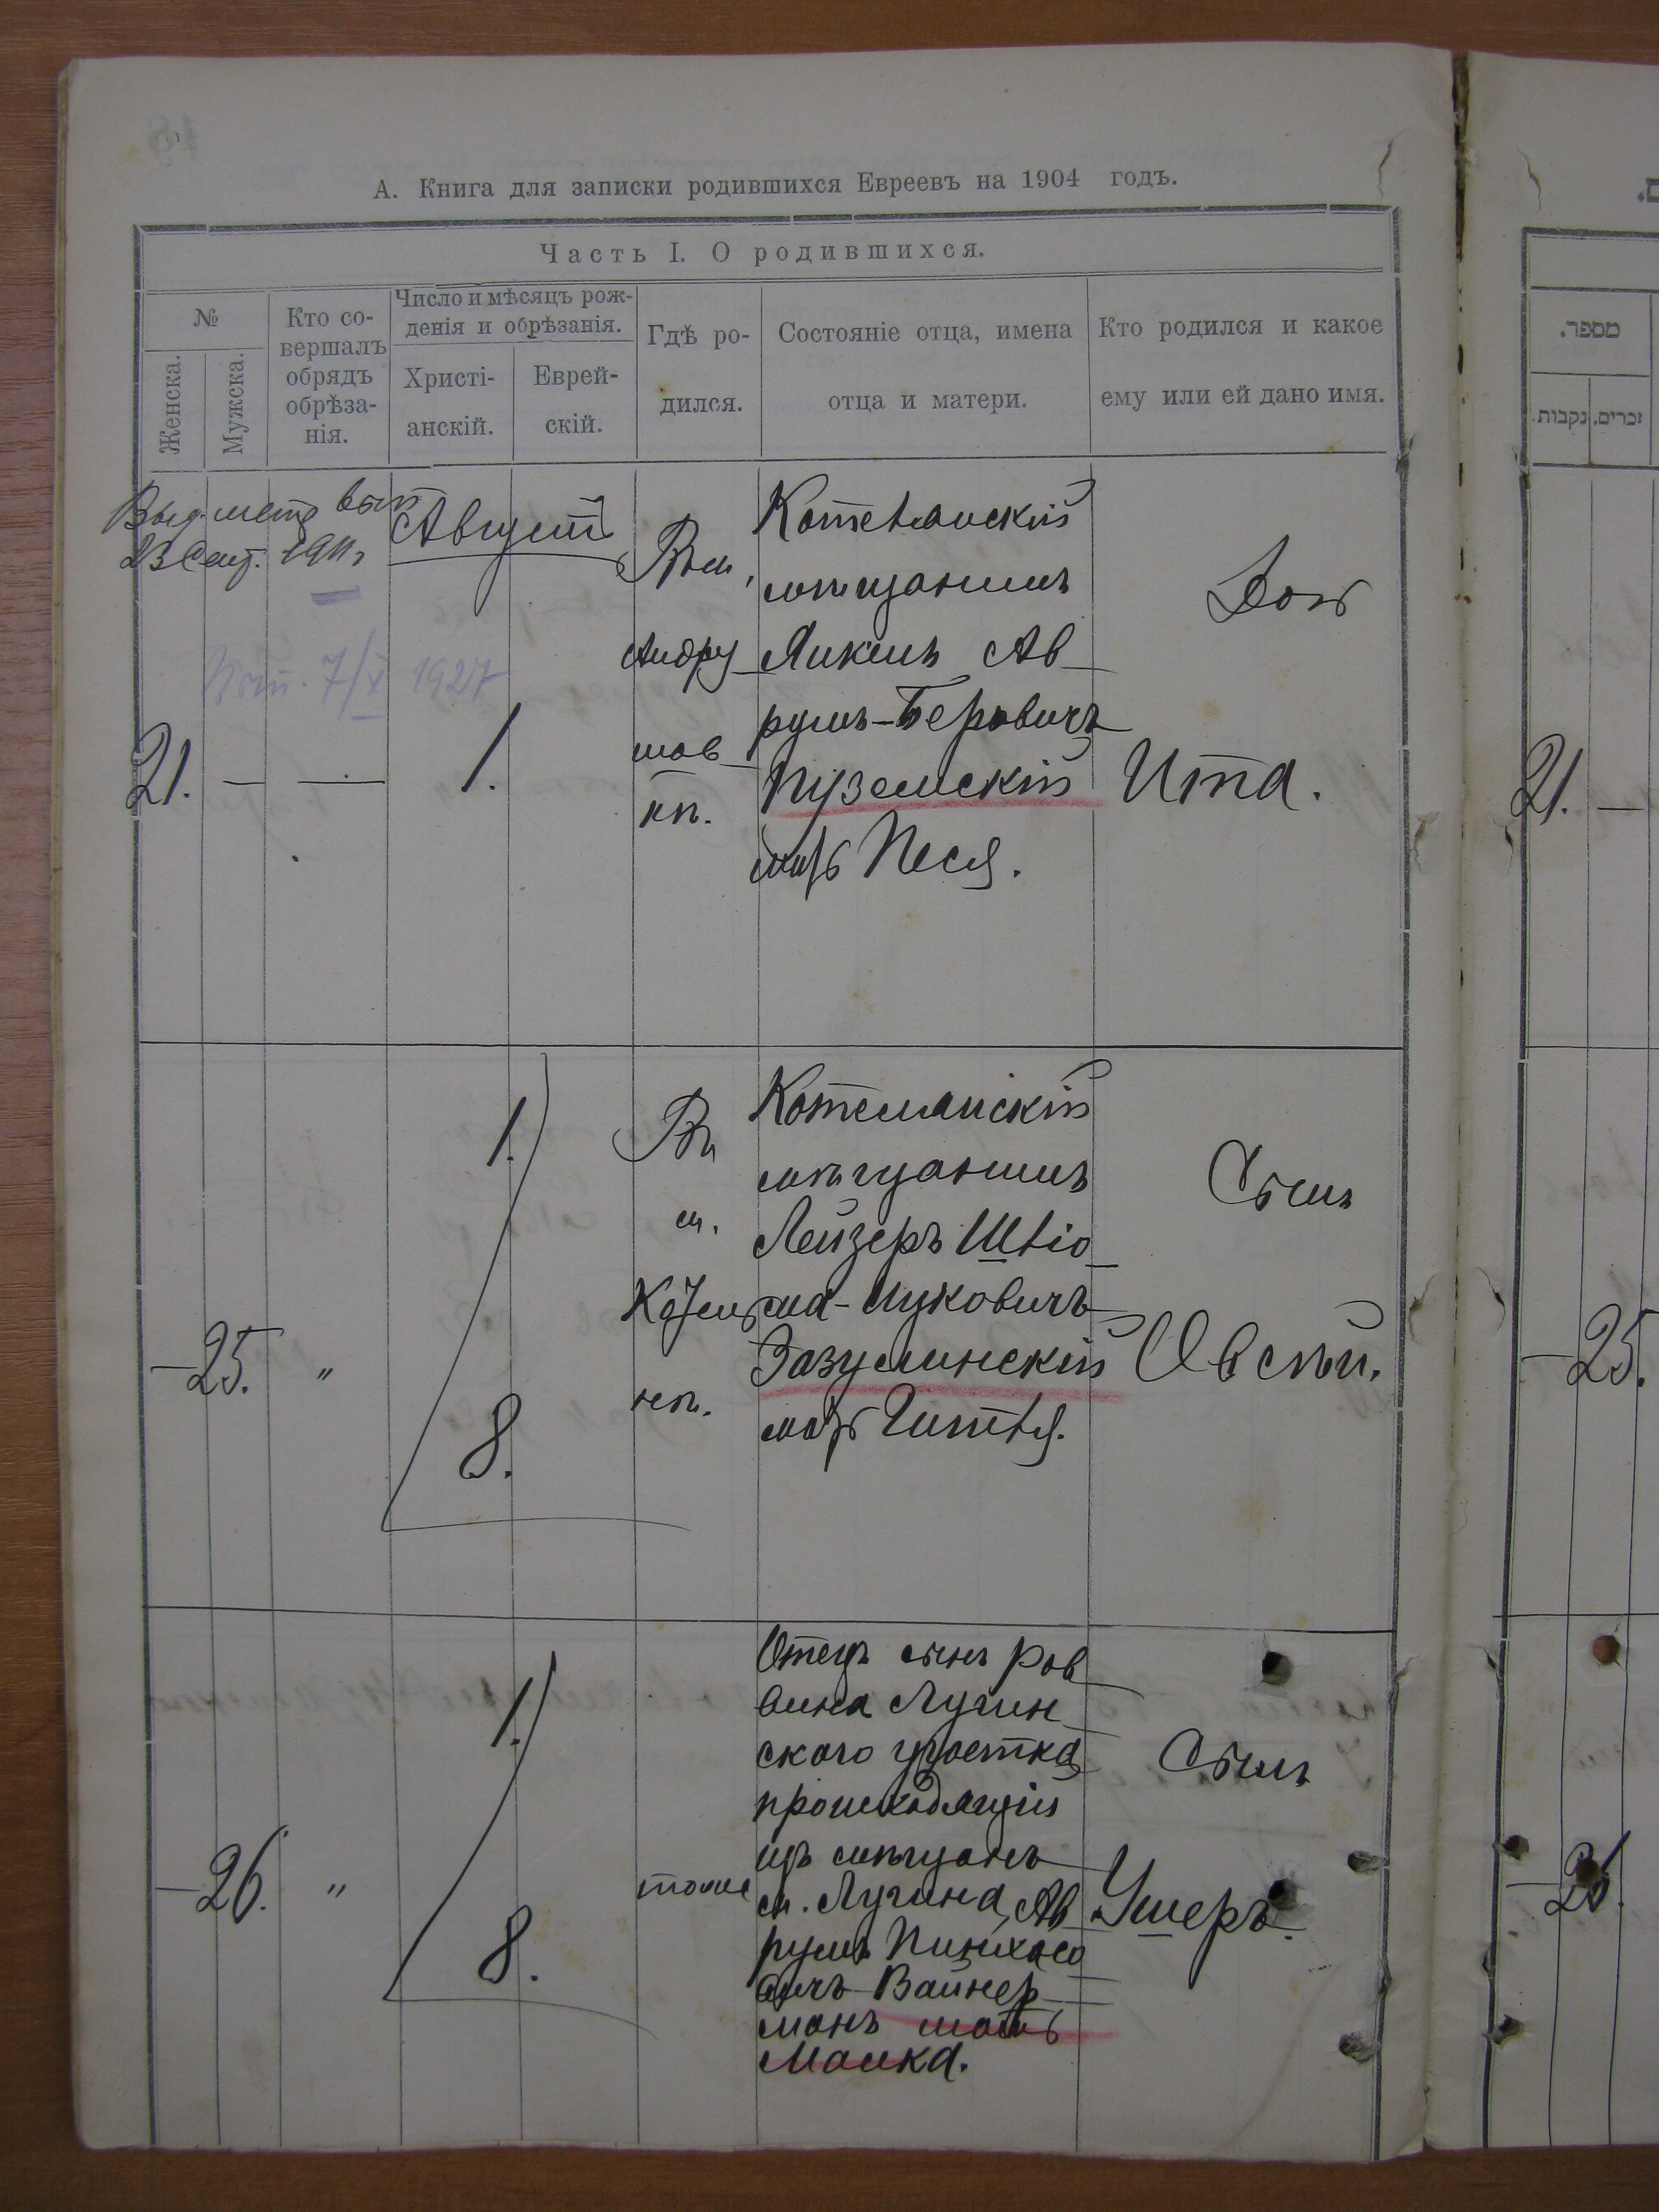 А. Книга для записки родившихся Евреевъ на 1904 годъ.
Часть I. О родившихся.
№
Женска.
Мужска.
Кто со-
вершалъ
обрядъ
обрѣза-
нія.
Число и мѣсяцъ рож-
денія и обрѣзанія.
Христі-
анскій.
Еврей-
скій.
Гдѣ ро-
дился.
Состояніе отца, имена
отца и матери.
Кто родился и какое
ему или ей дано имя.
Выд. метр. вып
23 Сент. 1911 г
7/X 1927
Августъ
21. — — 1.
Въ м.
Андру
шов
кѣ.
мѣщанинъ
Янкель Ав
румъ-Беровичъ
Пуземскій
мать Песя.
Дочь
Ита.
1.
8.
25. "
Въ
м.
Котель
нѣ.
Котельанскій
мѣщанинъ
Лейзеръ Шліо
ма-Ицковичъ
Зазулинскій
мать Гитля.
Сынъ
Овсѣй.
1.
8.
26. "
тоже
Отецъ сынъ рав
вина Лугин
ского участка
происходящій
изъ мѣщанъ
м. Лугина, Ав
румъ Пинхасо
вичъ Вайнер
манъ мать
Малка.
Сынъ
Ушеръ.
מספר.
נקבות.
זכרים.
21. —
25.
26.